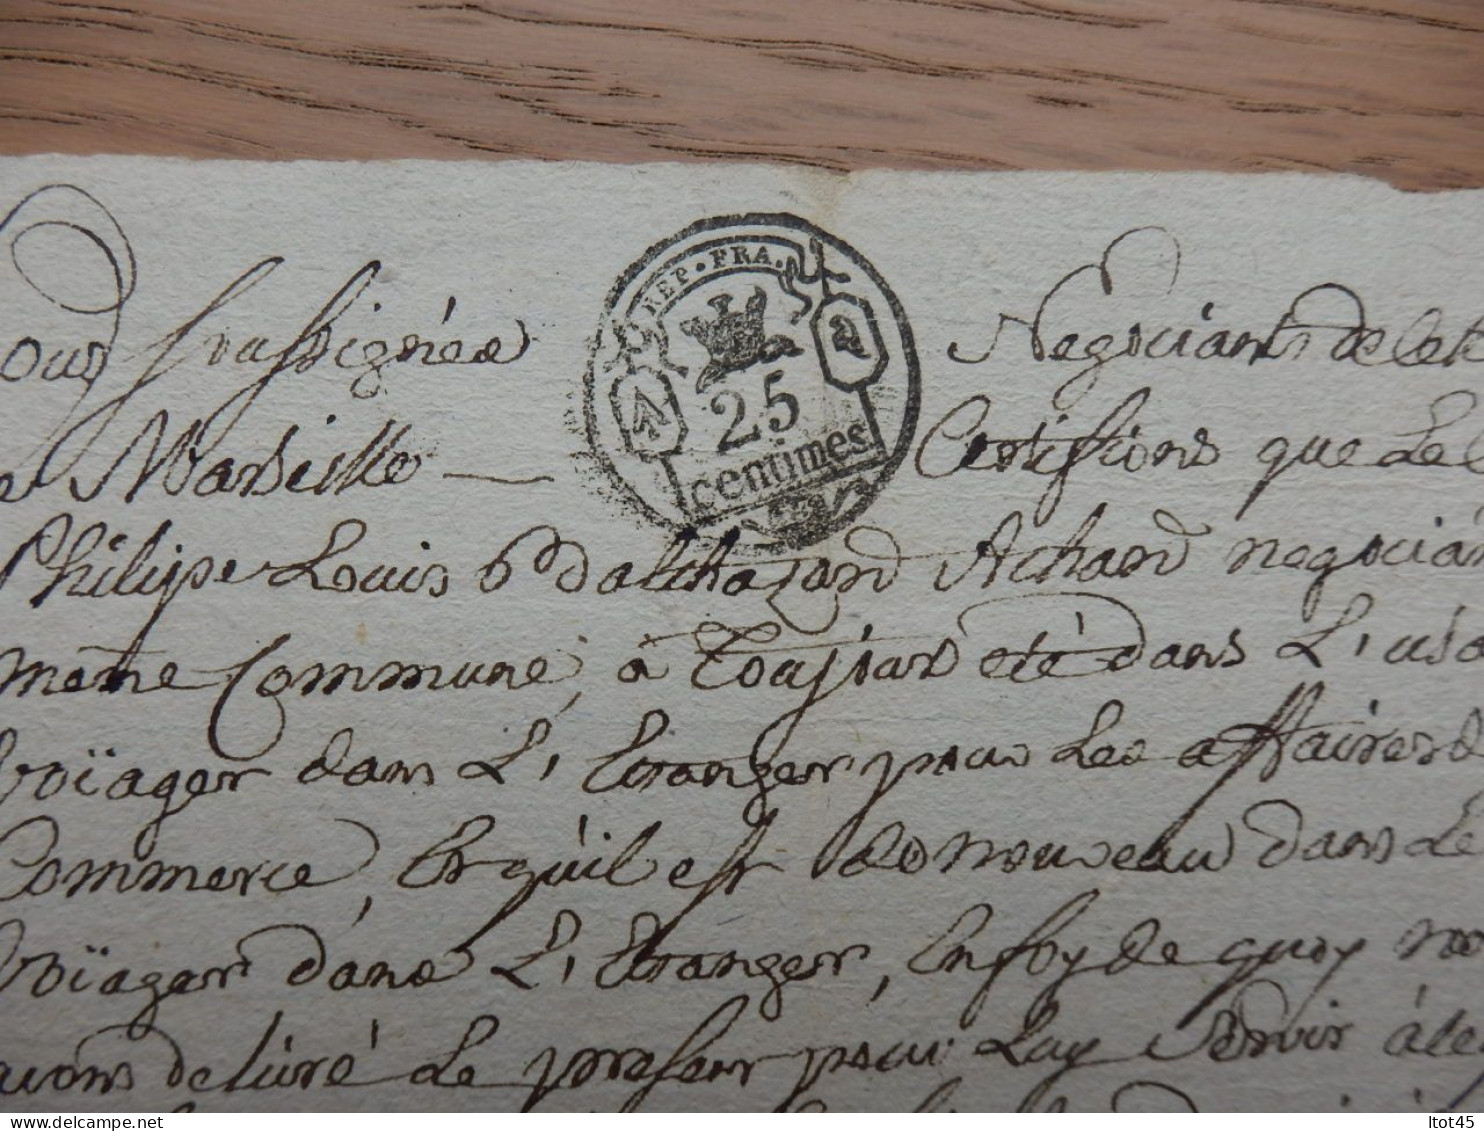 REP. FRA.
25
centimes
ous soussignées Negociants de cete
e Marseille — Certiffions que Le C
Philipe Louis Balthazard Achard negocian
meme Commune, à Toujour eté dans L'usa
voïager dans L'Etranger pour Les affaires d
Commerce, Et qu'il est de nouveau dans Le
voïager dans L'Etranger, En foy de quoy no
avons delivré Le present pour Luy Servir à te
ltot45